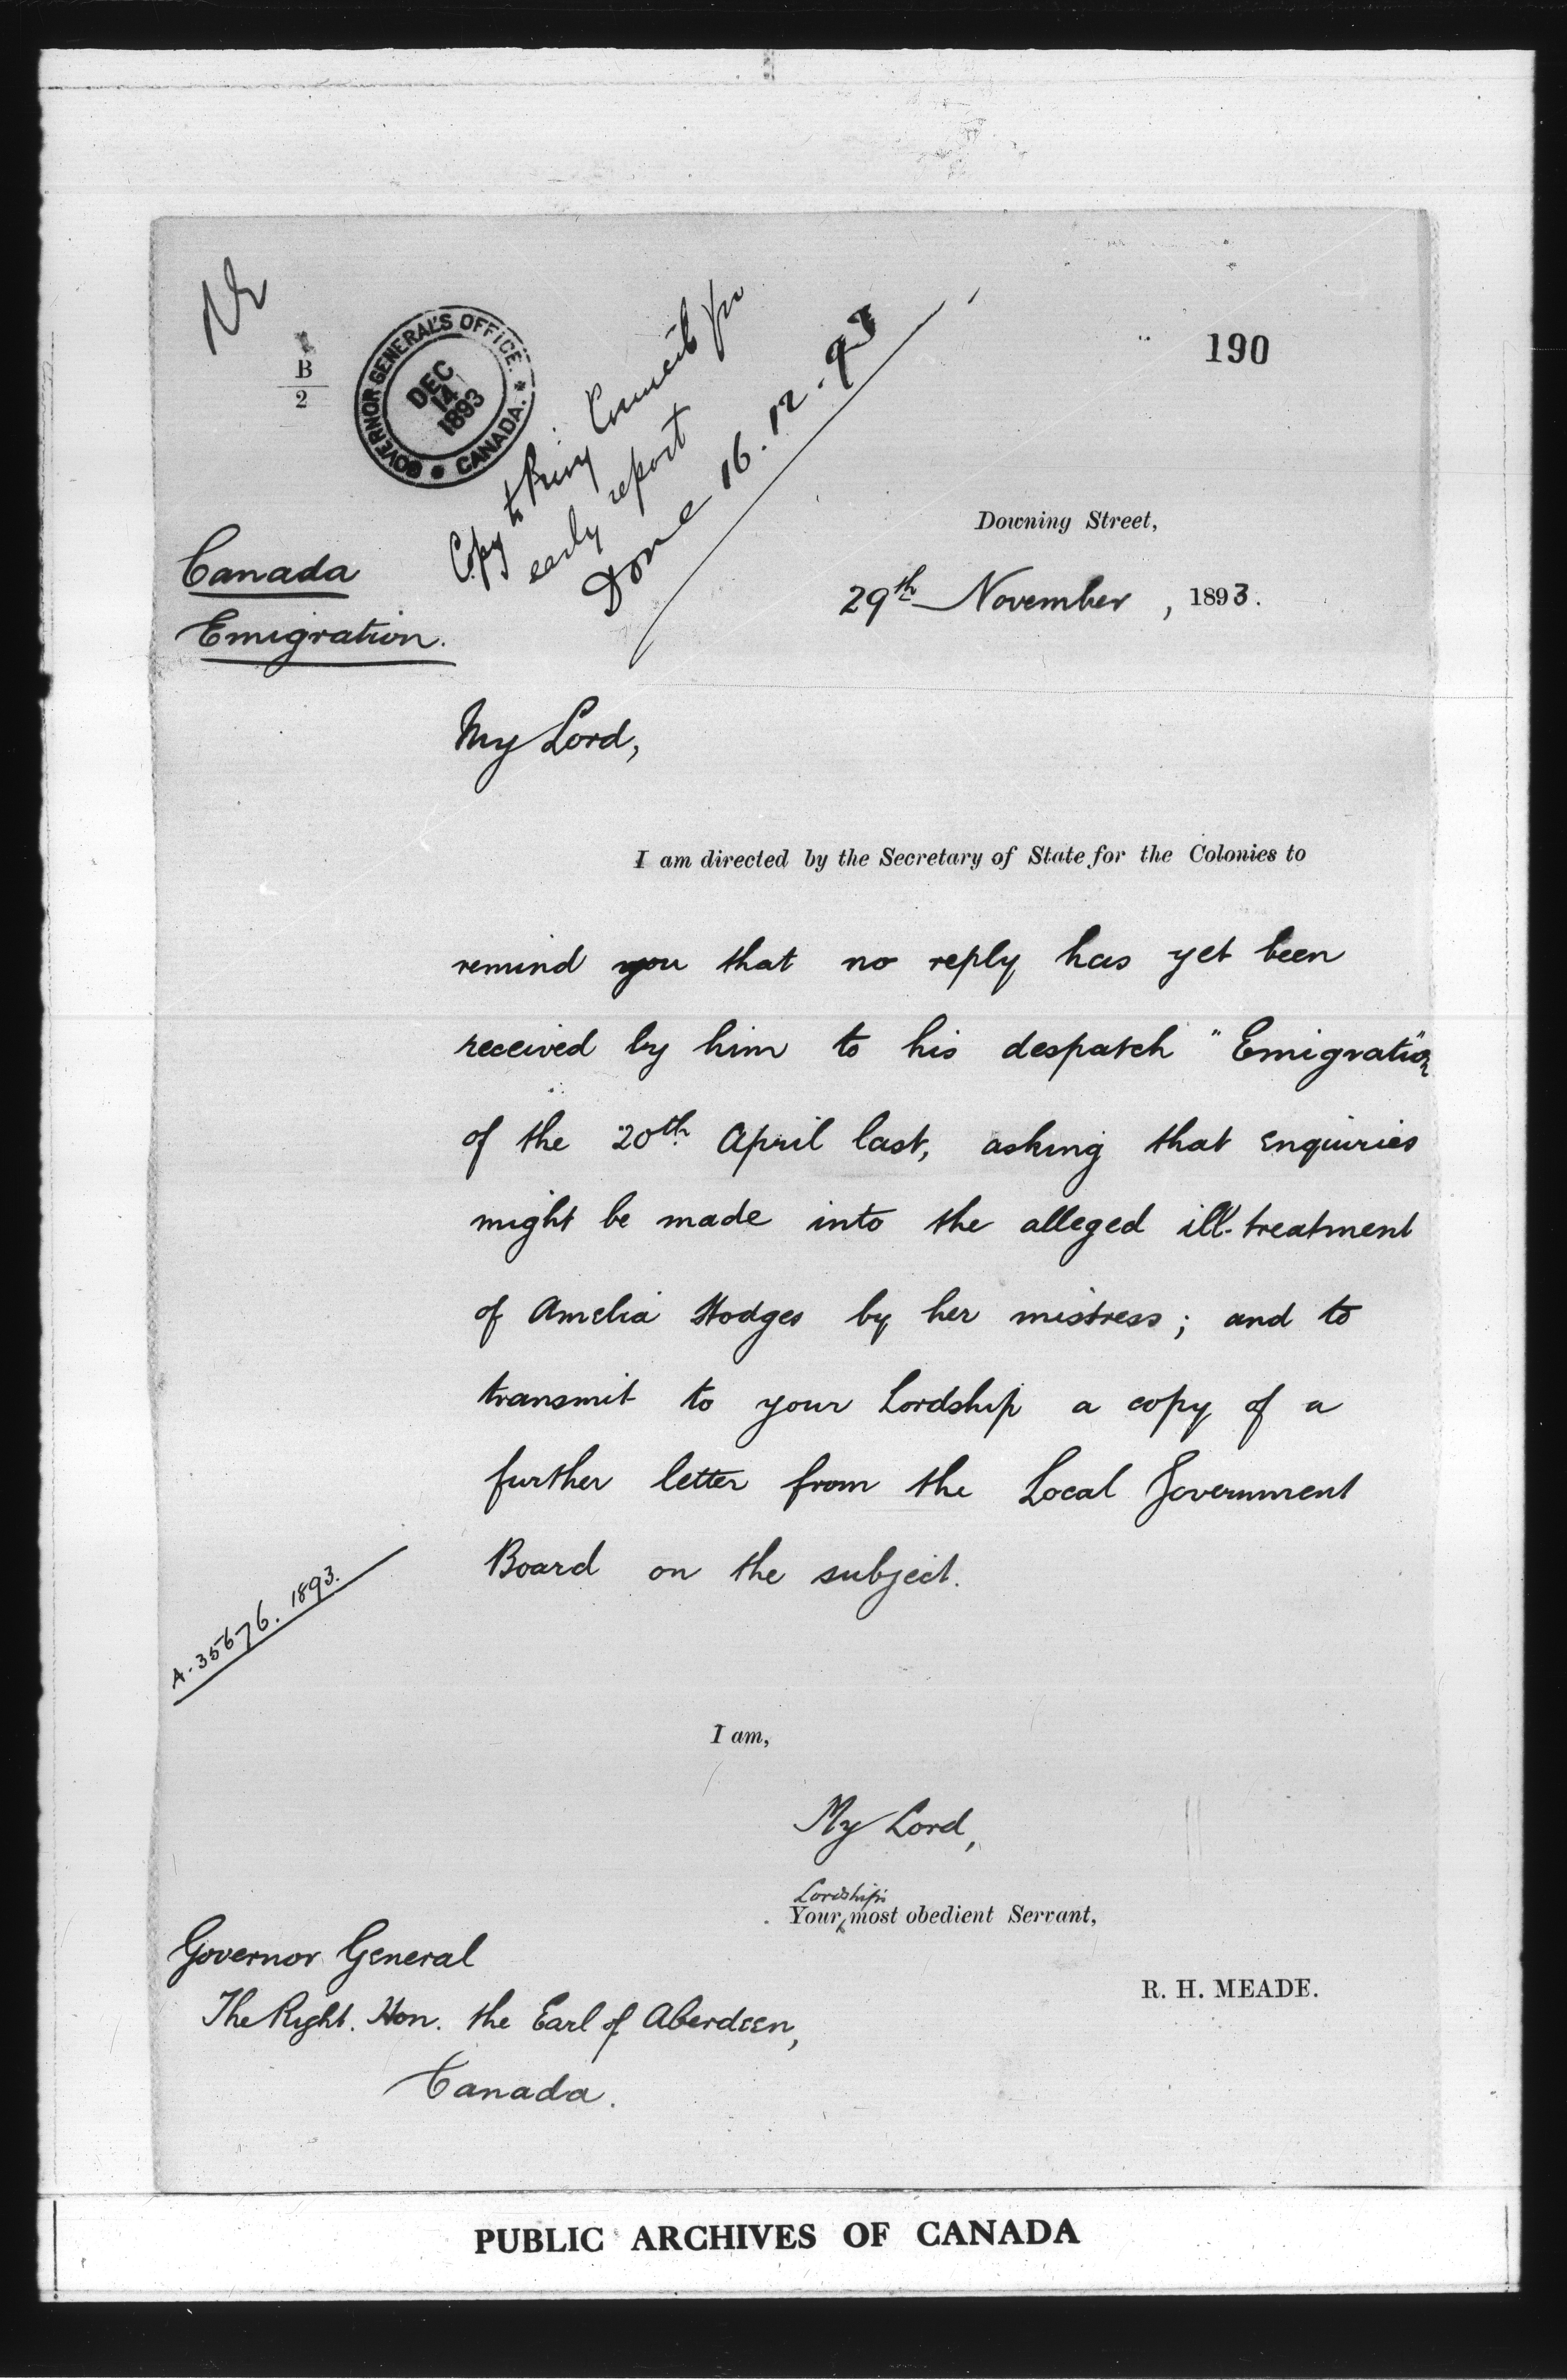 190
B
2
GOVERNOR GENERAL'S OFFICE.
DEC
14
1893
* CANADA. *
Copy to Privy Council for
early report
Done 16.12.93
Downing Street,
Canada
Emigration.
29th November, 1893.
My Lord,
I am directed by the Secretary of State for the Colonies to
remind you that no reply has yet been
received by him to his despatch "Emigration"
of the 20th April last, asking that enquiries
might be made into the alleged ill-treatment
of Amelia Hodges by her mistress; and to
transmit to your Lordship a copy of a
further letter from the Local Government
Board on the subject.
A. 35676. 1893.
I am,
My Lord,
Lordship's
Your most obedient Servant,
R. H. MEADE.
Governor General
The Right. Hon. the Earl of Aberdeen,
Canada.
PUBLIC ARCHIVES OF CANADA